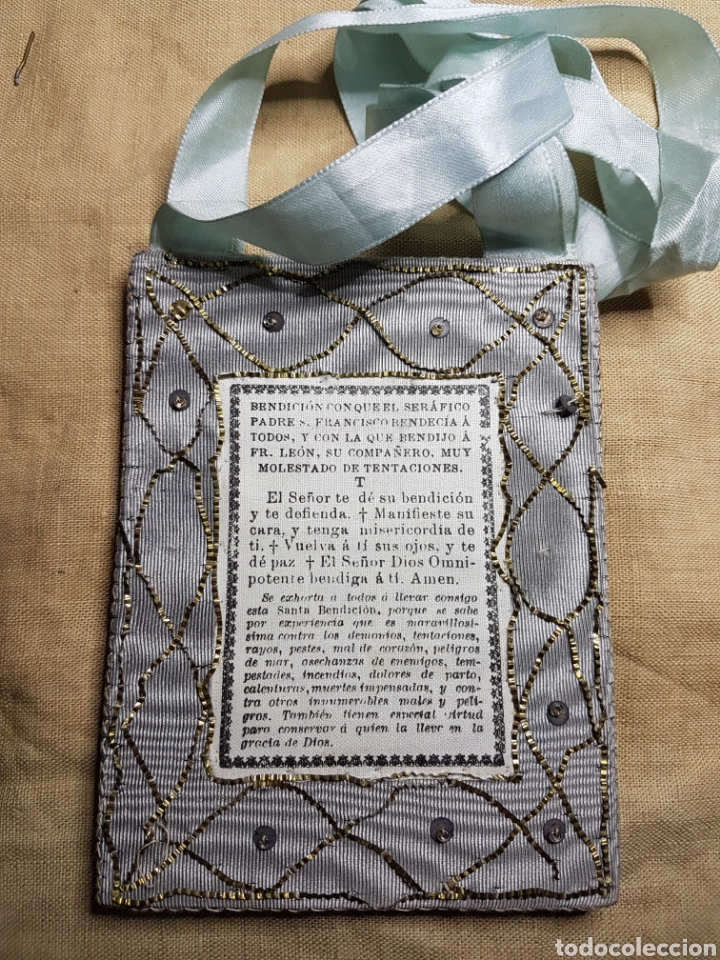 BENDICIÓN CON QUE EL SERÁFICO
PADRE S. FRANCISCO BENDECÍA Á
TODOS, Y CON LA QUE BENDIJO Á
FR. LEÓN, SU COMPAÑERO, MUY
MOLESTADO DE TENTACIONES.
T
El Señor te dé su bendición
y te defienda. † Manifieste su
cara, y tenga misericordia de
ti. † Vuelva á tí sus ojos, y te
dé paz † El Señor Dios Omni-
potente bendiga á tí. Amen.
Se exhorta a todos á llevar consigo
esta Santa Bendición, porque se sabe
por experiencia que es maravillosí-
sima contra los demonios, tentaciones,
rayos, pestes, mal de corazón, peligros
de mar, asechanzas de enemigos, tem-
pestades, incendios, dolores de parto,
calenturas, muertes impensadas, y con-
tra otros innumerables males y peli-
gros. También tienen especial virtud
para conservar á quien la lleve en la
gracia de Dios.
todocoleccion